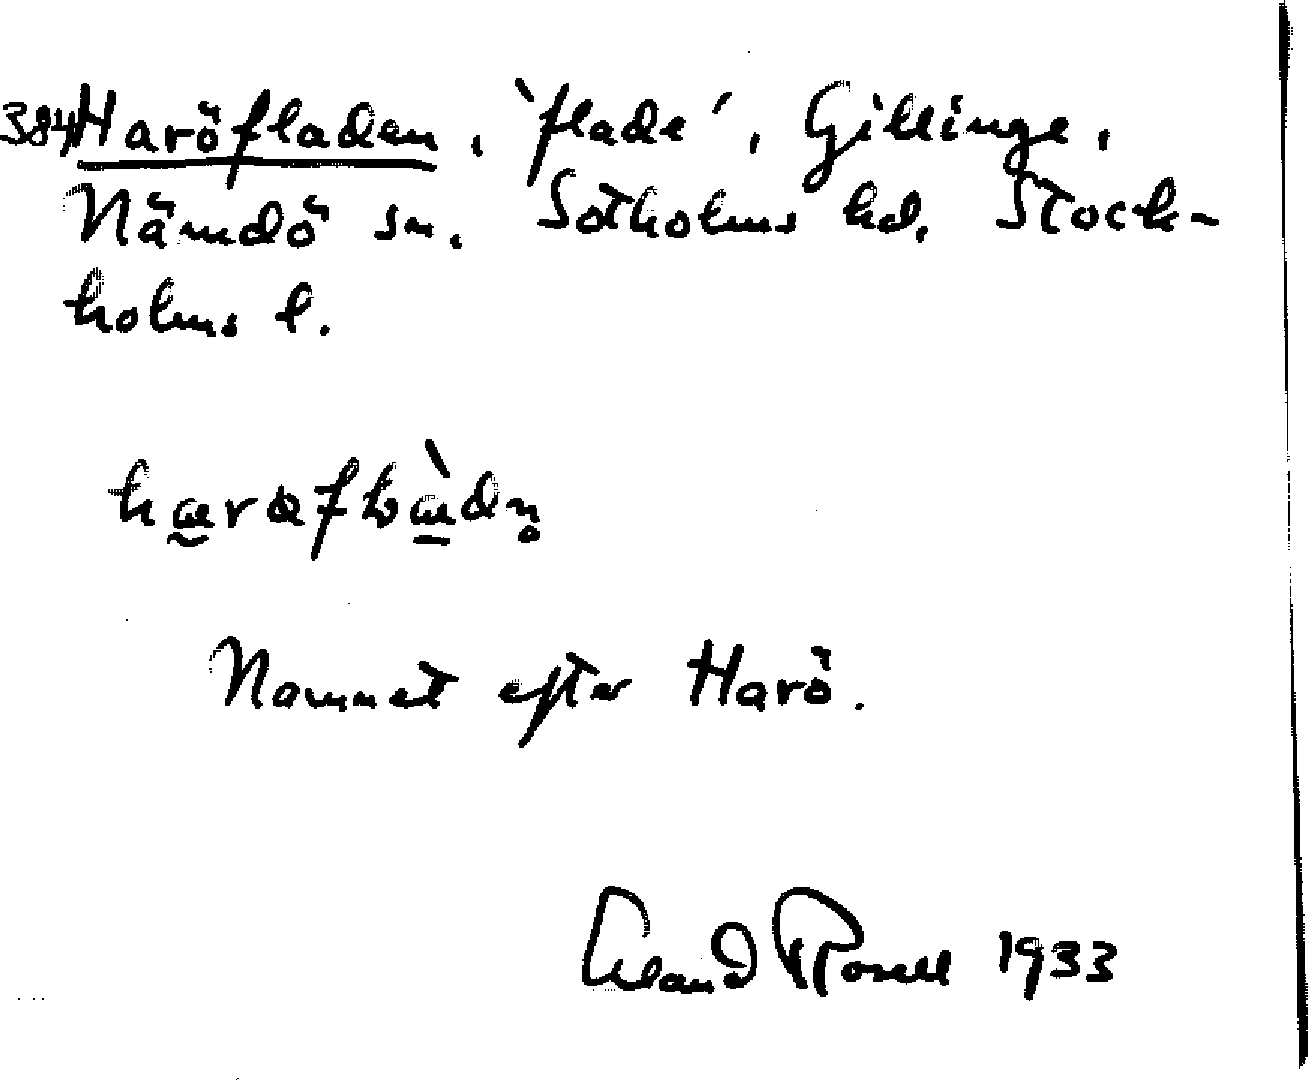 384 Haröfladen, 'flade', Gillinge,
Nämdö sn. Sotholms hd. Stock-
holms l.
Namnet efter Harö.
Rosell 1933